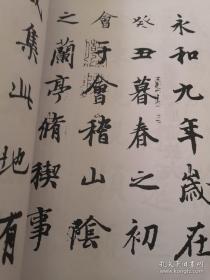 永和九年歲在
癸丑暮春之初
會于會稽山陰
之蘭亭脩稧事
集此地有